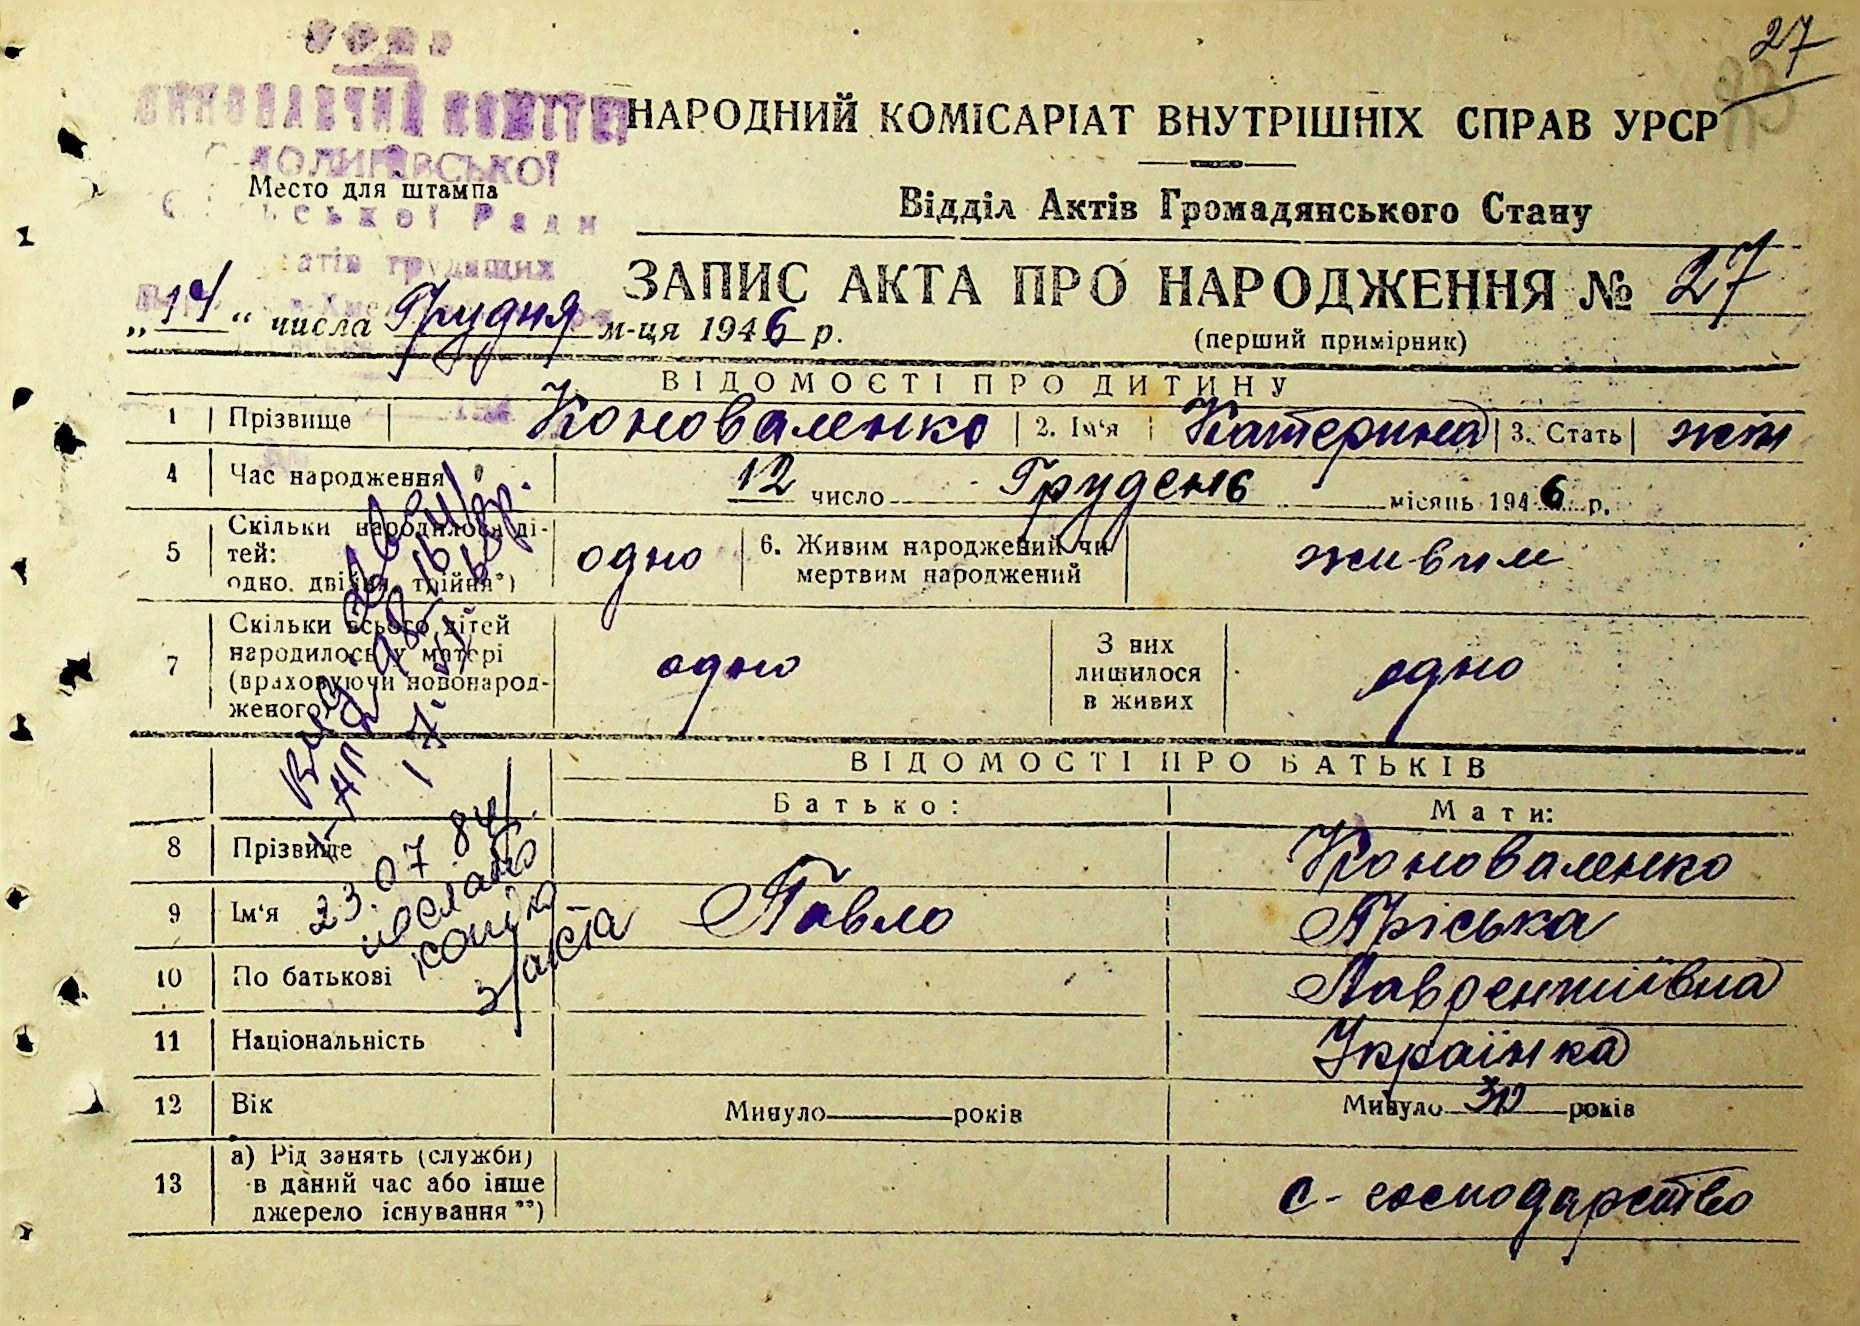 27
УРСР
ВИКОНАВЧИЙ КОМІТЕТ
НАРОДНИЙ КОМІСАРІАТ ВНУТРІШНІХ СПРАВ УРСР
Место для штампа
Ради
Відділ Актів Громадянського Стану
трудящих
ЗАПИС АКТА ПРО НАРОДЖЕННЯ № 27
(перший примірник)
„14“ числа Грудня м-ця 1946 р.
ВІДОМОСТІ ПРО ДИТИНУ
1 Прізвище Коноваленко 2. Ім‘я Катерина 3. Стать жін
4 Час народження 12 число Грудень місяць 1946 р.
5 Скільки народилося ді-
тей:
одно, двійня, трійня*) одно 6. Живим народжений чи
мертвим народжений живим
7 Скільки всього дітей
народилось у матері
(враховуючи новонарод-
женого) одно З них
лишилося
в живих одно
ВІДОМОСТІ ПРО БАТЬКІВ
Батько: Мати:
8 Прізвище Коноваленко
9 Ім‘я Павло Пріська
10 По батькові Лаврентиївна
11 Національність Українка
12 Вік Минуло років Минуло 30 років
13 а) Рід занять (служби)
в даний час або інше
джерело існування**) с-господарство
23.07 84
послано
копію
з акта